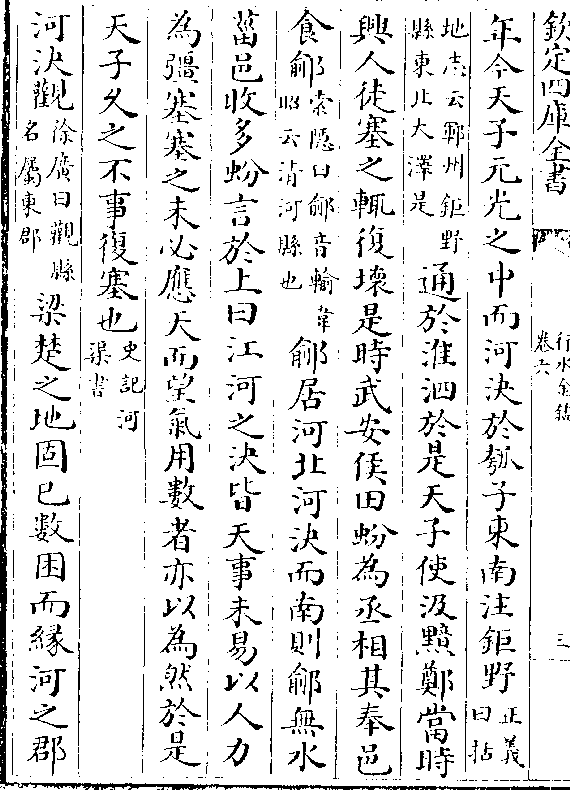 欽定四庫全書
行水金鑑
卷六
三
年今天子元光之中而河決於瓠子東南注鉅野正義曰括
地志云鄆州鉅野縣東北大澤是通於淮泗於是天子使汲黯鄭當時
興人徒塞之輒復壞是時武安侯田蚡為丞相其奉邑
食鄃索隠曰鄃音輸韋昭云清河縣也鄃居河北河決而南則鄃無水
菑邑收多蚡言於上曰江河之決皆天事未易以人力
為彊塞塞之未必應天而望氣用數者亦以為然於是
天子久之不事復塞也史記河渠書
河決觀徐廣曰觀縣名屬東郡梁楚之地固已數困而緣河之郡